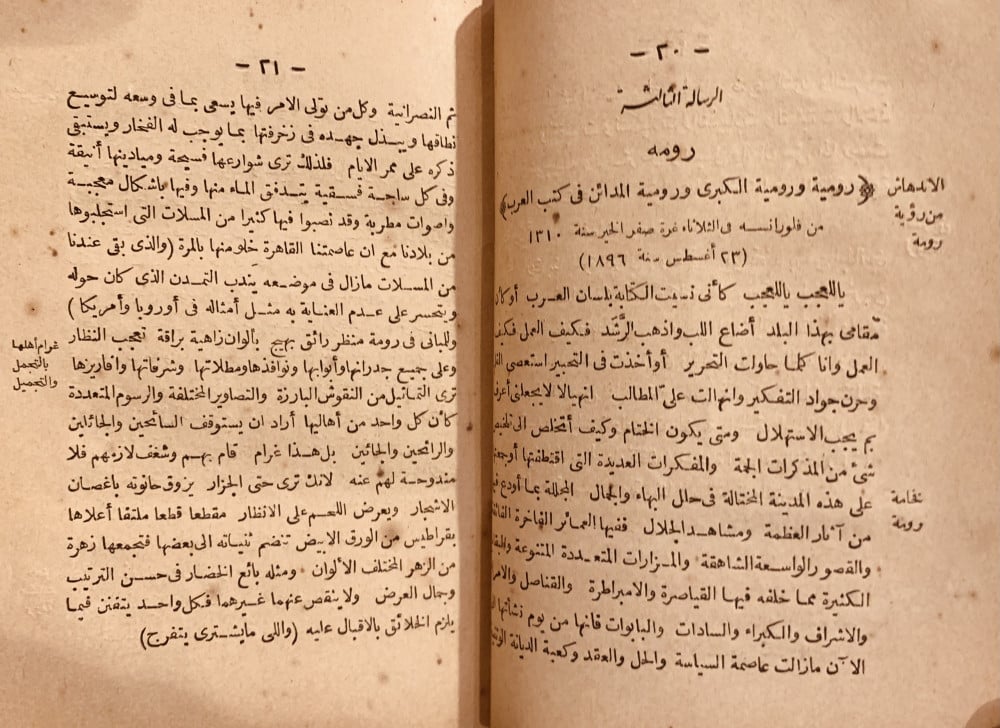 — ٢٠ —
الرسالة الثالثة
رومه
الاندهاش
من رؤية
رومة
﴿ رومية ورومية الكبرى ورومية المدائن فى كتب العرب﴾
من فلورانسه فى الثلاثاء غرة صفر الخير سنة ١٣١٠
(٢٣ أغسطس سنة ١٨٩٦)
ياللعجب ياللعجب كأنى نسيت الكتابة بلسان العرب أوكأن
مقامى بهذا البلد أضاع اللب واذهب الرَّشَد فكيف العمل فكيف
العمل وانا كلما حاولت التحرير أوأخذت فى التحبير استعصى
وحرن جواد التفكير وانهالت علىّ المطالب انهيالا لايجعلنى أعرف
بم يجب الاستهلال ومتى يكون الختام وكيف أتخلص الى تلخيص
شئ من المذكرات الجمة والمفكرات العديدة التى اقتطفتها
نخامة
رومة
على هذه المدينة المختالة فى حلل البهاء والجمال المحلاة بما أودع
من آثار العظمة ومشاهد الجلال ففيها العمائر الفاخرة
والقصور الواسعة الشاهقة والمزارات المتعددة المتنوعة
الكثيرة مما خلفه فيها القياصرة والامبراطرة والقناصل
والاشراف والكبراء والسادات والبابوات فانها من يوم نشأتها
الآن مازالت عاصمة السياسة والحل والعقد وكعبة الديانة
— ٢١ —
ثم النصرانية وكل من تولى الامر فيها يسعى بما فى وسعه لتوسيع
نطاقها ويبذل جهده فى زخرفتها بما يوجب له الفخار ويستبقى
ذكره على ممر الايام فلذلك ترى شوارعها فسيحة وميادينها أنيقة
وفى كل ساحة فسقية يتدفق الماء منها وفيها باشكال معجبة
واصوات مطربة وقد نصبوا فيها كثيرا من المسلات التى استجلبوها
من بلادنا مع ان عاصمتنا القاهرة خلو منها بالمرة (والذى بقى عندنا
من المسلات مازال فى موضعه يندب التمدن الذى كان حوله
ويتحسر على عدم العناية به مثل أمثاله فى أوروبا وأمريكا)
غرام أهلها
بالتجمل
والتجميل
وللبانى فى رومة منظر رائق بهيج بألوان زاهية براقة تعجب النظار
وعلى جميع جدرانها وأبوابها ونوافذها ومطلاتها وشرفاتها وأفاريزها
ترى التماثيل من النقوش البارزة والتصاوير المختلفة والرسوم المتعددة
كأن كل واحد من أهاليها أراد ان يستوقف السائحين والجائلين
والرائحين والجائين بل هذا غرام قام بهم وشغف لازمهم فلا
مندوحة لهم عنه لانك ترى حتى الجزار يزوق حانوته باغصان
الاشجار ويعرض اللحم على الانظار مقطعا قطعا ملتقا أعلاها
بقراطيس من الورق الابيض تنضم ثنياته الى بعضها فتجمعها زهرة
من الزهر المختلف الألوان ومثله بائع الخضار فى حسن الترتيب
وجمال العرض ولا ينقص عنهما غيرهما فكل واحد يتفنن فيما
يلزم الخلائق بالاقبال عليه (واللى مايشترى يتفرج)